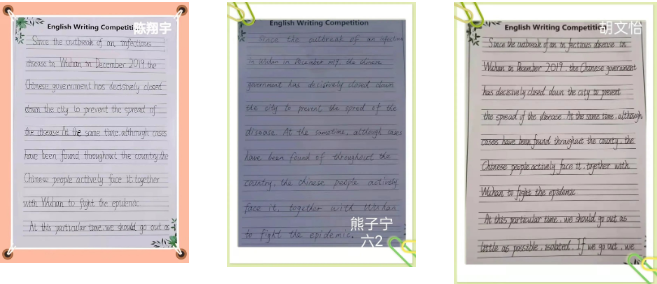 English Writing Competition
陈翔宇
Since the outbreak of an infectious
disease in Wuhan in December 2019, the
Chinese government has decisively closed
down the city to prevent the spread of
the disease. At the same time, although cases
have been found throughout the country, the
Chinese people actively face it, together
with Wuhan to fight the epidemic.
At this particular time, we should go out as
English Writing Competition
Since the outbreak of an infectious
in Wuhan in December the Chinese
government has decisively closed down
the city to prevent the spread of the
disease. At the meantime, although cases
have been found of throughout the
country, the Chinese people actively
face it, together with Wuhan
to fight the epidemic.
熊子宁
六2
English Writing Competition
胡文怡
Since the outbreak of an infectious disease in
Wuhan in December 2019, the Chinese government
has decisively closed down the city to prevent
the spread of the disease. At the same time, although
cases have been found throughout the country, the
Chinese people actively face it, together with
Wuhan to fight the epidemic.
At this particular time, we should go out as
little as possible, isolated. If we go out, we